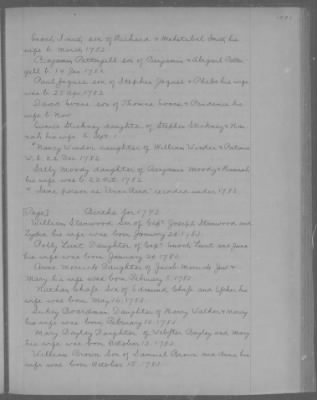 Enoch Smith, son of Richard & Mehetabel Smith his
wife b. March 1782
Benjamin Pettengell son of Benjamin & Abigail Petten
gell b. 14 Jan 1782
Paul Jaques son of Stephen Jaques & Phebe his wife
was b. 25 Apr. 1782
David Evans son of Thomas Evans & Prudence his
wife b. Nov
Eunice Stickney daughter of Stephen Stickney & Han
nah his wife b. Sept.
*Nancy Windor daughter of William Windor & Patience
W. b. 22 Dec 1782
Sally Moody daughter of Benjamin Moody & Hannah
his wife was b. 22 Oct. 1782
* Same person as recorded under 1783
[Page] Births for 1792
William Stanwood Son of Capt Joseph Stanwood and
Lydia his wife was born January 20. 1783.
Polly Lunt Daughter of Capt Enoch Lunt and Jane
his wife was born January 24 1783
Anna Daughter of Jacob and
Mary his wife was born February 1. 1783.
Nathan Chase Son of Edmund Chase and his
wife was born May 16. 1783.
Sukey Boardman Daughter of Walker & Mary
his wife was born February 10. 1783
Mary Bayley Daughter of Webster Bayley and Mary
his wife was born October 13. 1783
William Brown Son of Samuel Brown and Anna his
wife was born October 15. 1783